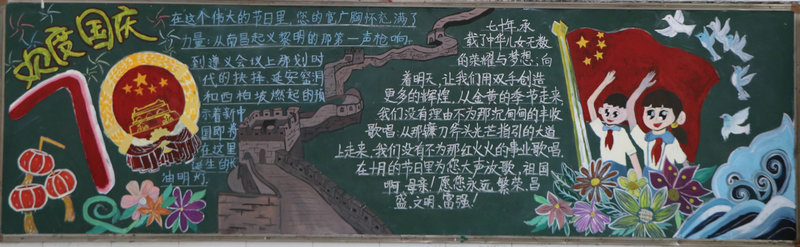 欢度国庆
70
在这个伟大的节日里,您的宽广胸怀充满了
力量:从南昌起义黎明的那第一声枪响,
到遵义会议上原划时
代的抉择,延安窑洞
和西柏坡燃起的预
示着新中
国即将
在这里
诞生的
油明灯,
七十年,承
载了中华儿女无数
的荣耀与梦想;向
着明天,让我们用双手创造
更多的辉煌,从金黄的季节走来,
我们没有理由不为那沉甸甸的丰收
歌唱;从那镰刀斧头光芒指引的大道
上走来,我们没有不为那红火火的事业歌唱,
在十月的节日里为您大声放歌,祖国
啊,母亲!愿您永远 繁荣、昌
盛、文明、富强!